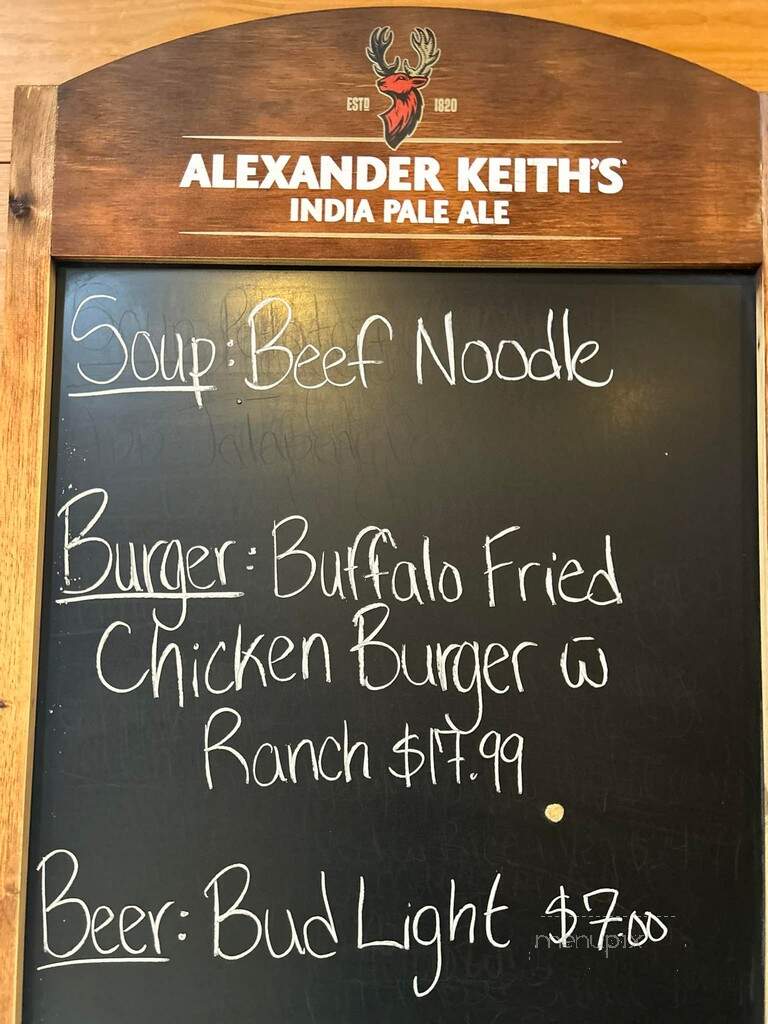 ESTD 1820
ALEXANDER KEITH'S
INDIA PALE ALE
Soup: Beef Noodle
Burger: Buffalo Fried
Chicken Burger w̄
Ranch $17.99
Beer: Bud Light $7.00
menupix